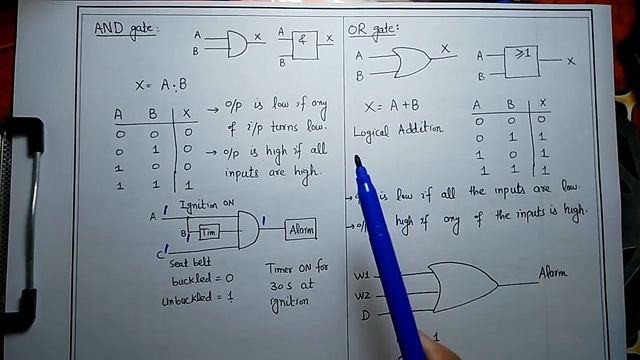 AND gate:
A
B
X
A
B
&
X
X = A · B
A B X
0 0 0
0 1 0
1 0 0
1 1 1
→ o/p is low if any
of i/p turns low.
→ o/p is high if all
inputs are high.
Ignition ON
A 1
B 1 Tim
C 1
1
Alarm
Seat belt
buckled = 0
Unbuckled = 1
Timer ON for
30 s at
ignition
OR gate:
A
B
X
A
B
≥1
X
X = A + B
Logical Addition
A B X
0 0 0
0 1 1
1 0 1
1 1 1
→ is low if all the inputs are low.
→ o/p high if any of the inputs is high.
W1
W2
D
Alarm
1